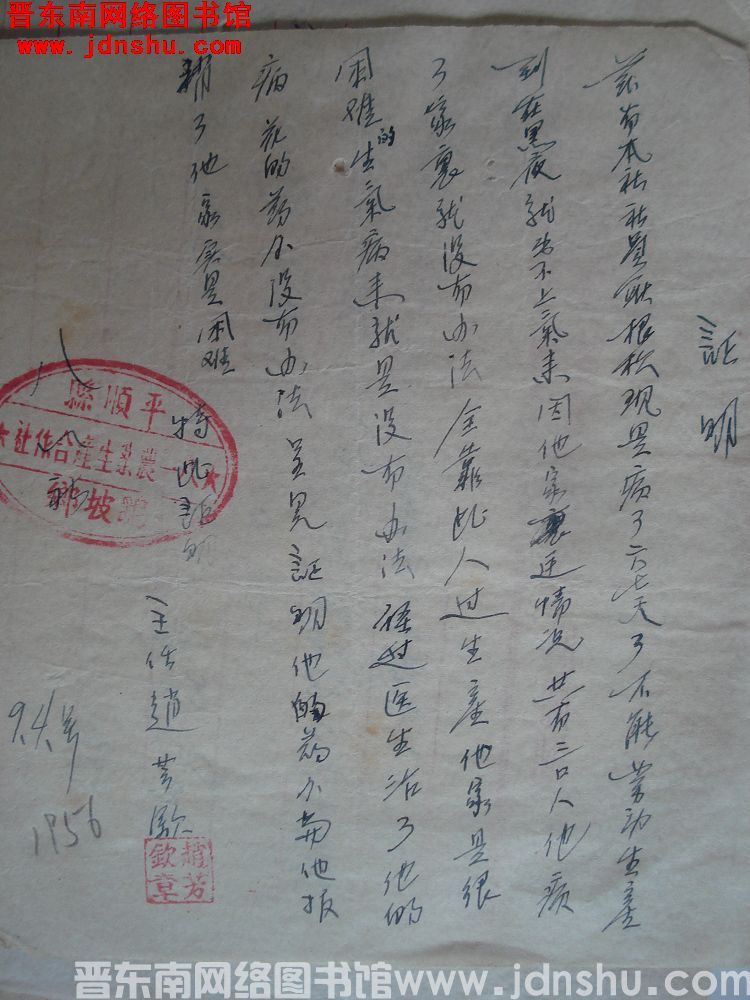 晋东南网络图书馆
www.jdnshu.com
証明
茲有本社社員 根松現是病了六七天了不能劳动生產
到在黑夜就出不上氣来因他家裏 情况共有三口人他病
了家裏就没有办法全靠此人过生產他家是很
困难的生氣病来就是没有办法 过医生治了他的
病花的葯 没有办法 証明他的葯 他报
销了他家实是困难
特此証明
主任趙芳欽
趙芳欽章
平順縣
農業生產合作社
坡
八 八
9.4.号
1956
晋东南网络图书馆www.jdnshu.com